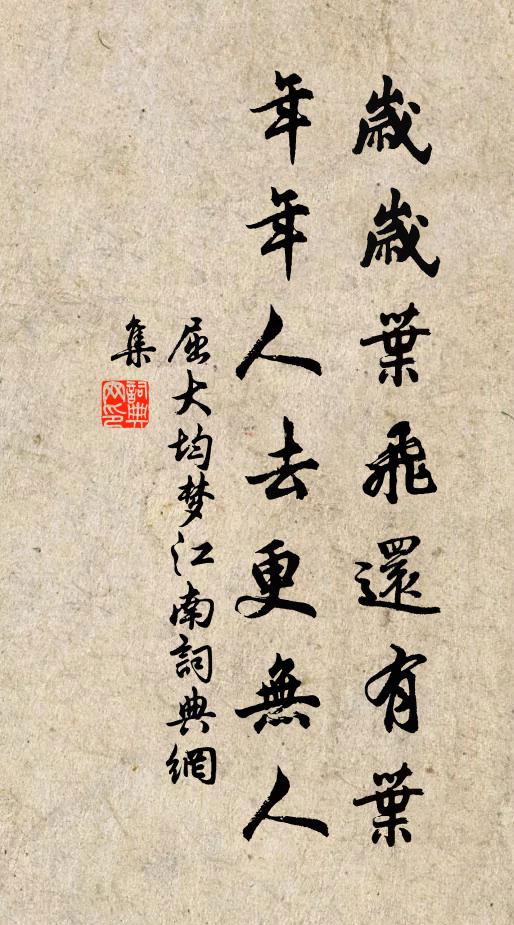 歲歲葉飛還有葉
年年人去更無人
屈大均梦江南詞典網
集
詞典網印